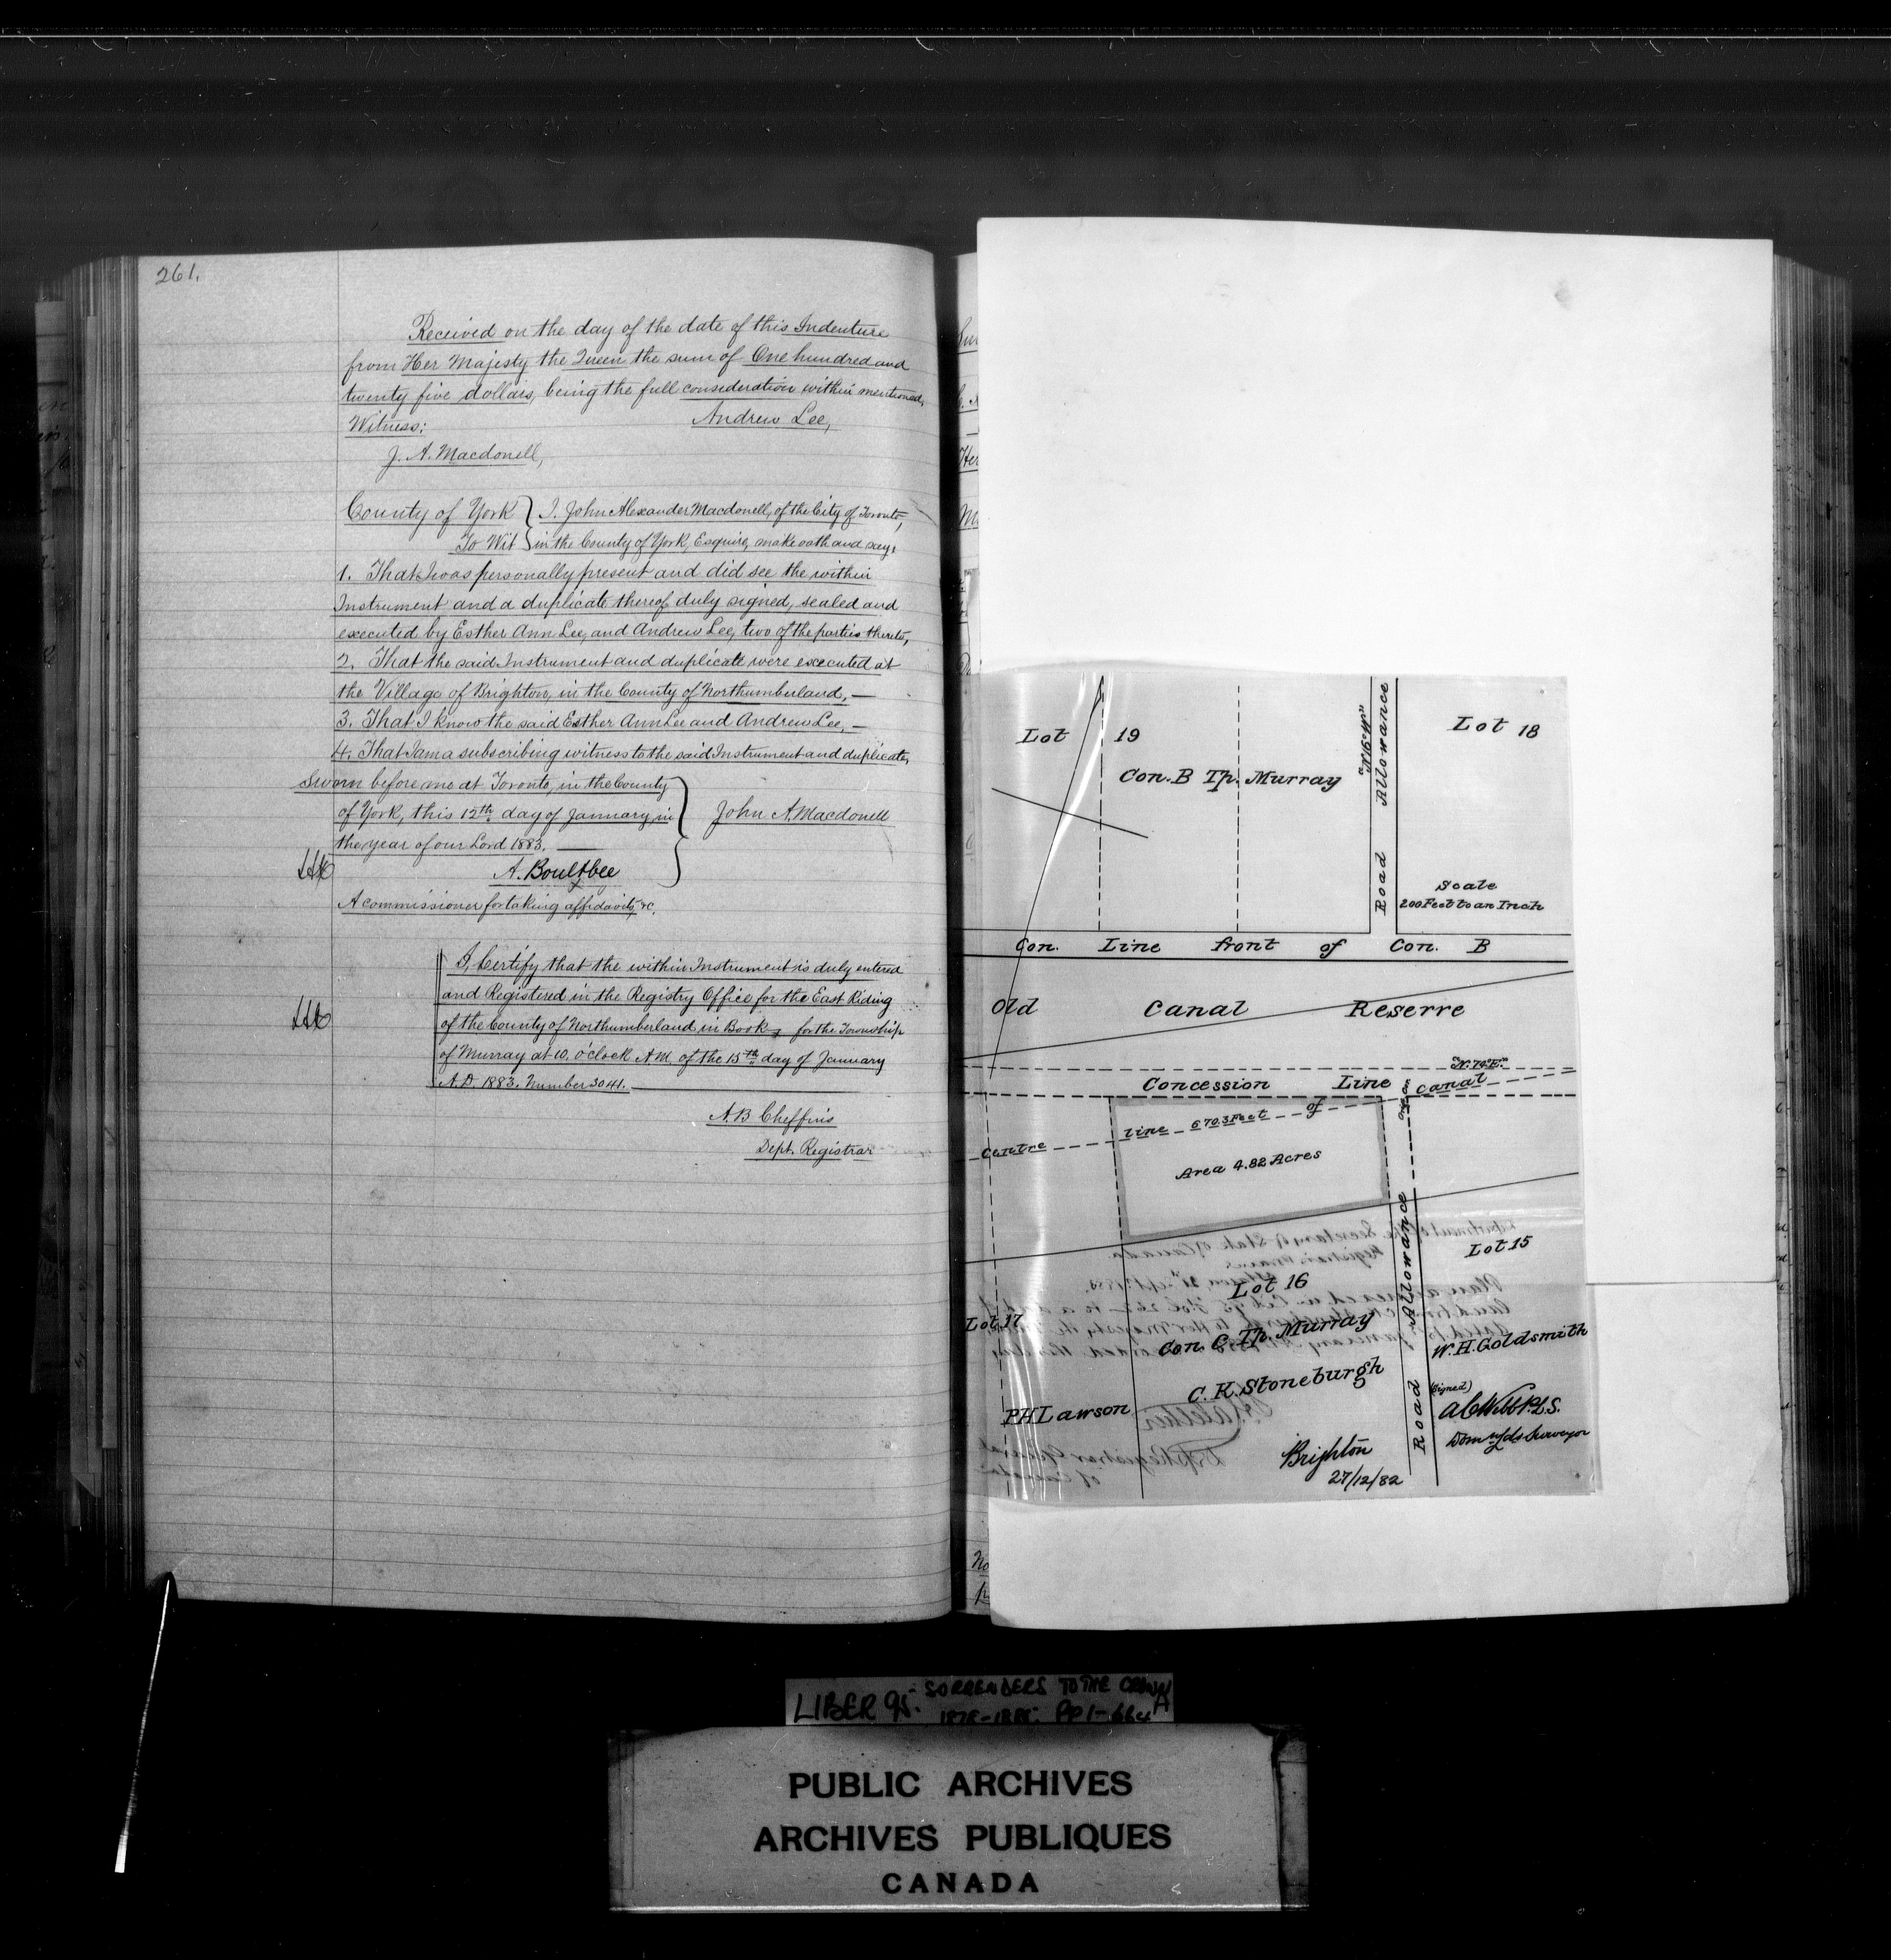 261.
Received on the day of the date of this Indenture
from Her Majesty the Queen the sum of One hundred and
twenty five dollars, being the full consideration within mentioned,
Witness: Andrew Lee,
J. A. Macdonell,
County of York } I, John Alexander Macdonell, of the City of Toronto,
To Wit } in the County of York, Esquire, make oath and say:
1. That I was personally present and did see the within
Instrument and a duplicate thereof duly signed, sealed and
executed by Esther Ann Lee, and Andrew Lee, two of the parties thereto,
2. That the said Instrument and duplicate were executed at
the Village of Brighton, in the County of Northumberland, —
3. That I know the said Esther Ann Lee and Andrew Lee, —
4. That I am a subscribing witness to the said Instrument and duplicate,
Sworn before me at Toronto, in the County
of York, this 12th day of January, in } John A. Macdonell
the year of our Lord 1883. —
A. Boultbee
A commissioner for taking affidavits, &c.
I, Certify that the within Instrument is duly entered
and Registered in the Registry Office for the East Riding
of the County of Northumberland in Book, for the Township
of Murray at 10. o'clock A.M. of the 15th day of January
A.D. 1883. Number 3041. —
A B Cheffins
Dept. Registrar
Lot 19
Con. B Tp. Murray
"N.16°W."
Road Allowance
Lot 18
Scale
200 Feet to an Inch
Con. Line front of Con. B
Old Canal Reserve
"N. 74°E."
Concession Line
Centre line 670.3 Feet of Canal
Area 4.82 Acres
Road Allowance
Lot 15
Lot 16
Lot 17
Con. C. Tp. Murray
W. H. Goldsmith
C. K. Stoneburgh
P H Lawson
(Signed)
A C Webb P.L.S.
Dom. Lds Surveyor
Brighton
27/12/82
LIBER 95. SURRENDERS TO THE CROWN
PUBLIC ARCHIVES
ARCHIVES PUBLIQUES
CANADA